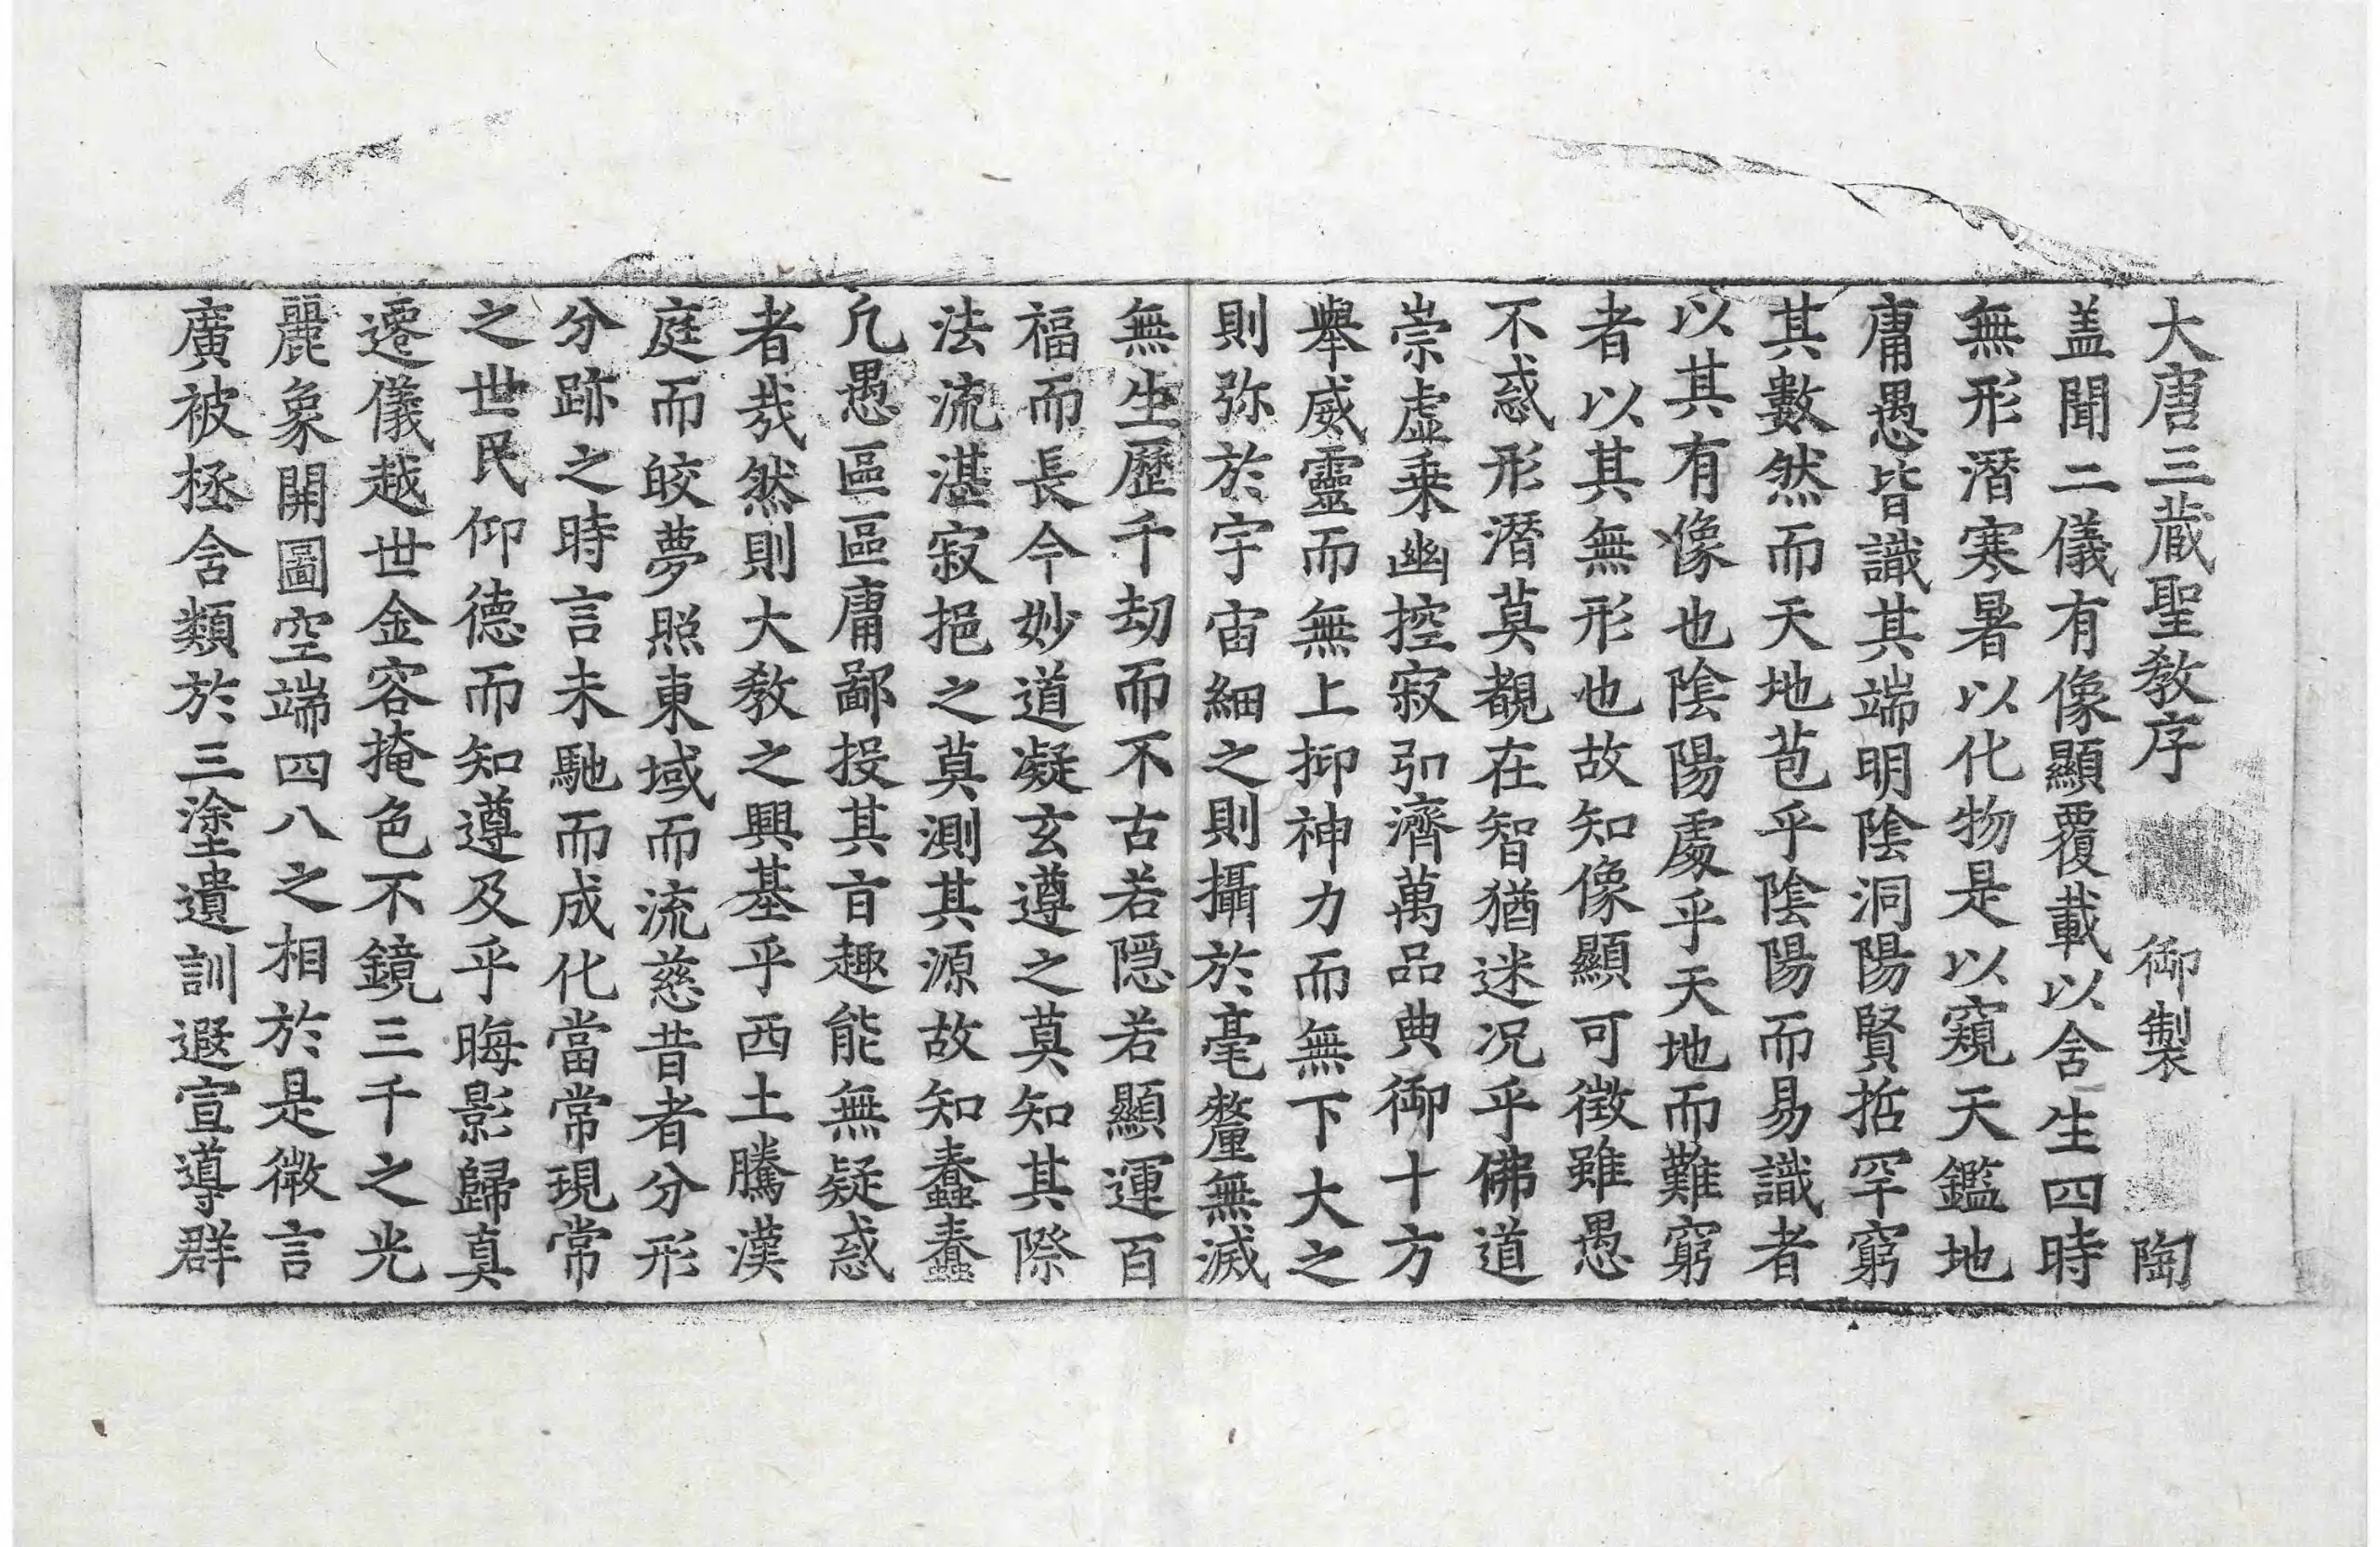 大唐三蔵聖教序 御製 陶
盖聞二儀有像顯覆載以含生四時
無形潛寒暑以化物是以窺天鑑地
庸愚皆識其端明陰洞陽賢哲罕窮
其數然而天地苞乎陰陽而易識者
以其有像也陰陽處乎天地而難窮
者以其無形也故知像顯可徵雖愚
不惑形潛莫覩在智猶迷况乎佛道
崇虛乗幽控寂弘濟萬品典御十方
舉威靈而無上抑神力而無下大之
則弥於宇宙細之則攝於毫釐無滅
無生歷千劫而不古若隠若顯運百
福而長今妙道凝玄遵之莫知其際
法流湛寂挹之莫測其源故知蠢蠢
凢愚區區庸鄙投其㫖趣能無疑惑
者㢤然則大教之興基乎西土騰漢
庭而皎夢照東域而流慈昔者分形
分跡之時言未馳而成化當常現常
之世民仰德而知遵及乎晦影歸真
遷儀越世金容掩色不鏡三千之光
麗象開圖空端四八之相於是微言
廣被拯含類於三塗遺訓遐宣導群